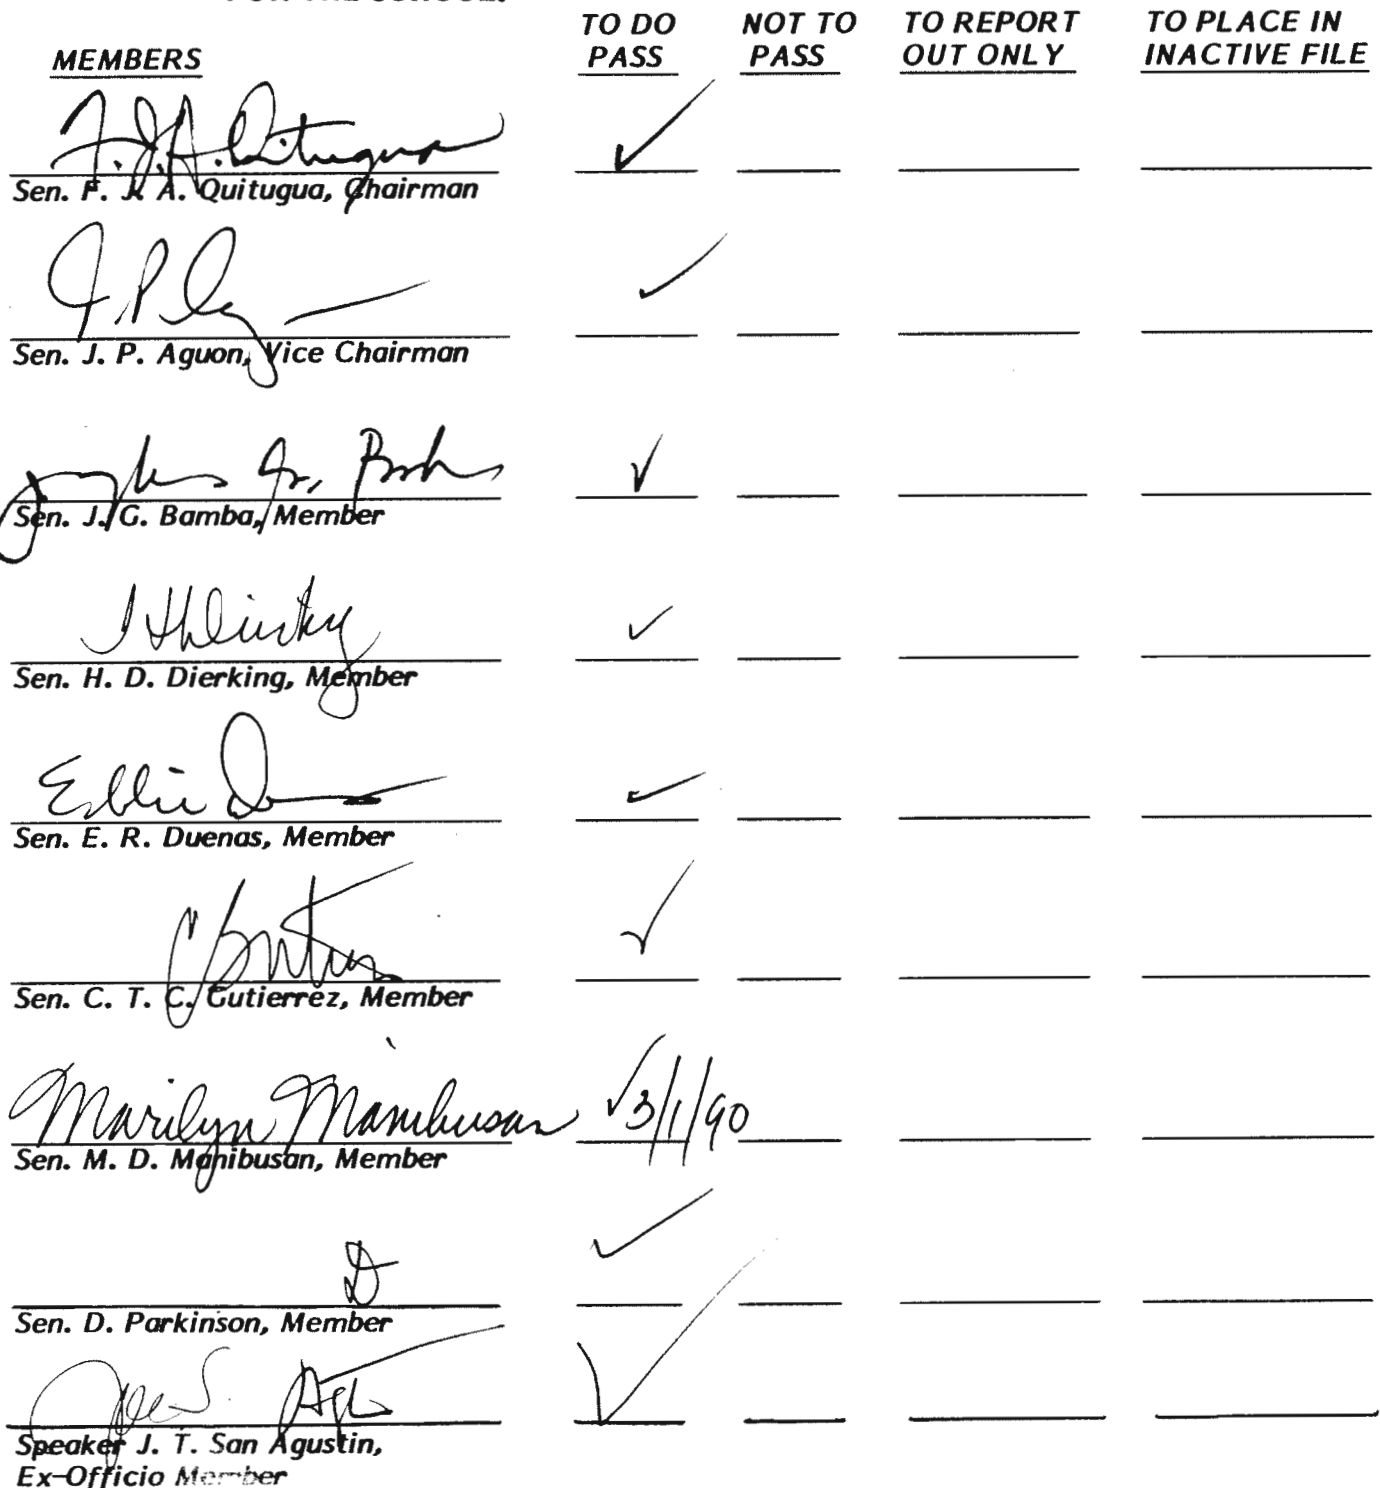 FOR THE SCHOOL.
MEMBERS
TO DO PASS
NOT TO PASS
TO REPORT OUT ONLY
TO PLACE IN INACTIVE FILE
F. J. A. Quitugua ✓
Sen. F. J. A. Quitugua, Chairman
J. P. ✓
Sen. J. P. Aguon, Vice Chairman
✓
Sen. J. G. Bamba, Member
✓
Sen. H. D. Dierking, Member
Eddie D ✓
Sen. E. R. Duenas, Member
✓
Sen. C. T. C. Gutierrez, Member
Marilyn Manibusan ✓ 3/1/90
Sen. M. D. Manibusan, Member
D ✓
Sen. D. Parkinson, Member
Joe S. Ag ✓
Speaker J. T. San Agustin,
Ex-Officio Member